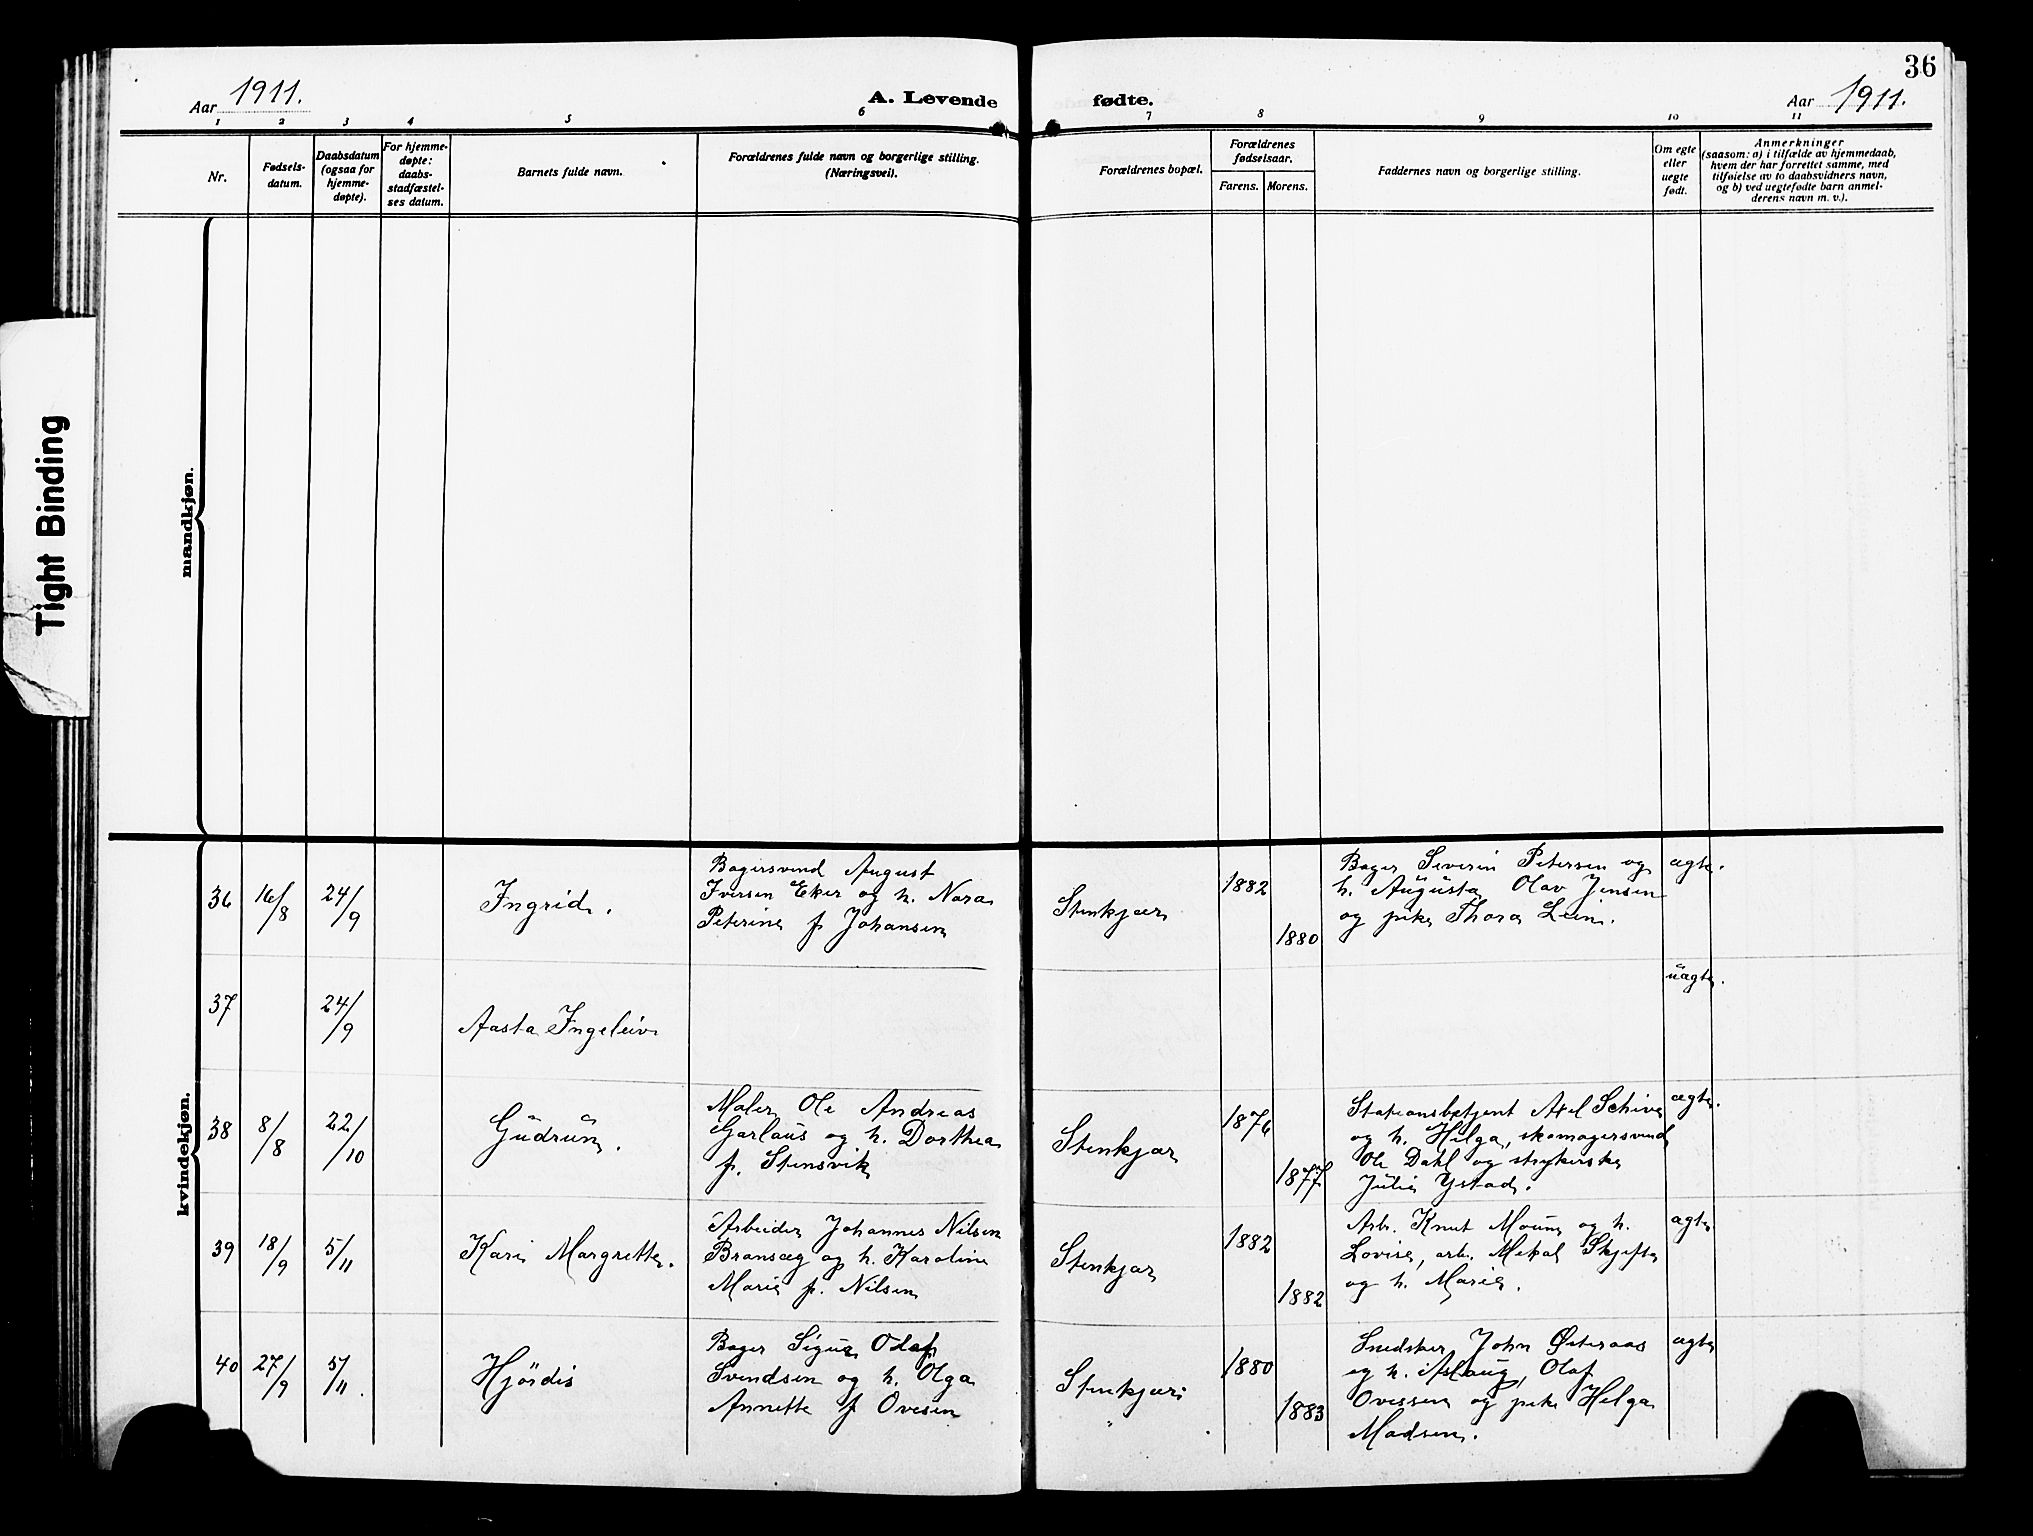 Tight Binding
36
Aar 1911.
A. Levende
fødte.
Aar 1911.
1 2 3 4 5 6 7 8 9 10 11
Nr.
Fødsels-
datum.
Daabsdatum
(ogsaa for
hjemme-
døpte).
For hjemme-
døpte:
daabs-
stadfæstel-
ses datum.
Barnets fulde navn.
Forældrenes fulde navn og borgerlige stilling.
(Næringsvei).
Forældrenes bopæl.
Forældrenes
fødselsaar.
Farens. Morens.
Faddernes navn og borgerlige stilling.
Om egte
eller
uegte
født.
Anmerkninger
(saasom: a) i tilfælde av hjemmedaab,
hvem der har forrettet samme, med
tilføielse av to daabsvidners navn,
og b) ved uegtefødte barn anmel-
derens navn m. v.).
mandkjøn.
kvindekjøn.
36 16/8 24/9
Ingrid.
Bagersvend August
Iversen Eker og h. Nora
Petrine f Johansen
Stenkjær
1882
1880
Bager Severin Petersen og
h. Augusta, Olav Jensen
og pike Thora Lein.
ægte.
37 24/9
Aasta Ingeleiv
uægte.
38 8/8 22/10
Gudrun.
Maler Ole Andreas
Garlaus og h. Dorthea
f. Stensvik
Stenkjær
1876
1877
Stationsbetjent Axel Schive
og h. Helga, skomagersvend
Ole Dahl og strykerske
Julie Ystad.
ægte.
39 18/9 5/11
Kari Margrethe.
Arbeider Johannes Nilsen
Bransæg og h. Karoline
Marie f. Nilsen
Stenkjær
1882
1882
Arb. Knut Moum og h.
Lovise, arb. Mikal Skjefte
og h. Marie.
ægte
40 27/9 5/11.
Hjördis
Bager Sigur Olaf
Svendsen og h. Olga
Annette f Ovesen
Stenkjær
1880
1883
Snedker John Østeraas
og h. Aslaug, Olaf
Ovessen og pike Helga
Madsen.
ægte